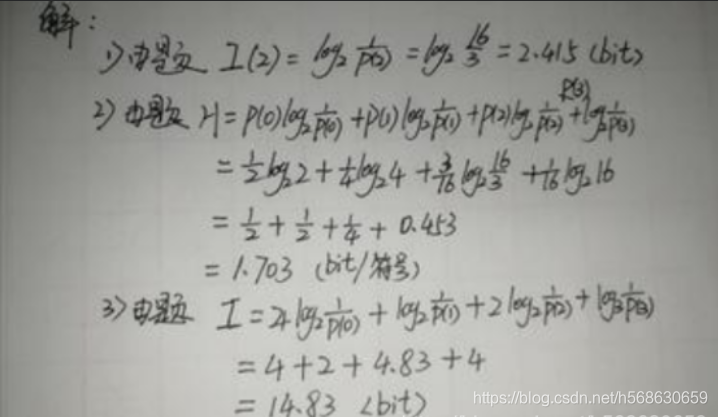 解:
1) 由题意 I(2) = log₂ 1/P(2) = log₂ 16/3 = 2.415 (bit)
2) 由题意 H = P(0)log₂ 1/P(0) + P(1)log₂ 1/P(1) + P(2)log₂ 1/P(2) + P(3)log₂ 1/P(3)
= 1/2 log₂2 + 1/4 log₂4 + 3/16 log₂ 16/3 + 1/16 log₂16
= 1/2 + 1/2 + 1/4 + 0.453
= 1.703 (bit/符号)
3) 由题意 I = 4 log₂ 1/P(0) + log₂ 1/P(1) + 2 log₂ 1/P(2) + log₂ 1/P(3)
= 4 + 2 + 4.83 + 4
= 14.83 (bit)
https://blog.csdn.net/h568630659